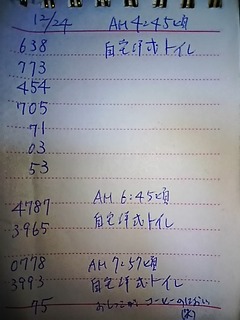 12/24 AM 4:45頃
638 自宅洋式トイレ
773
454
705
71
03
53
AM 6:45頃
4787 自宅洋式トイレ
3965
0778 AM 7:57頃
3993 自宅洋式トイレ
75 おしっこが コーヒーの